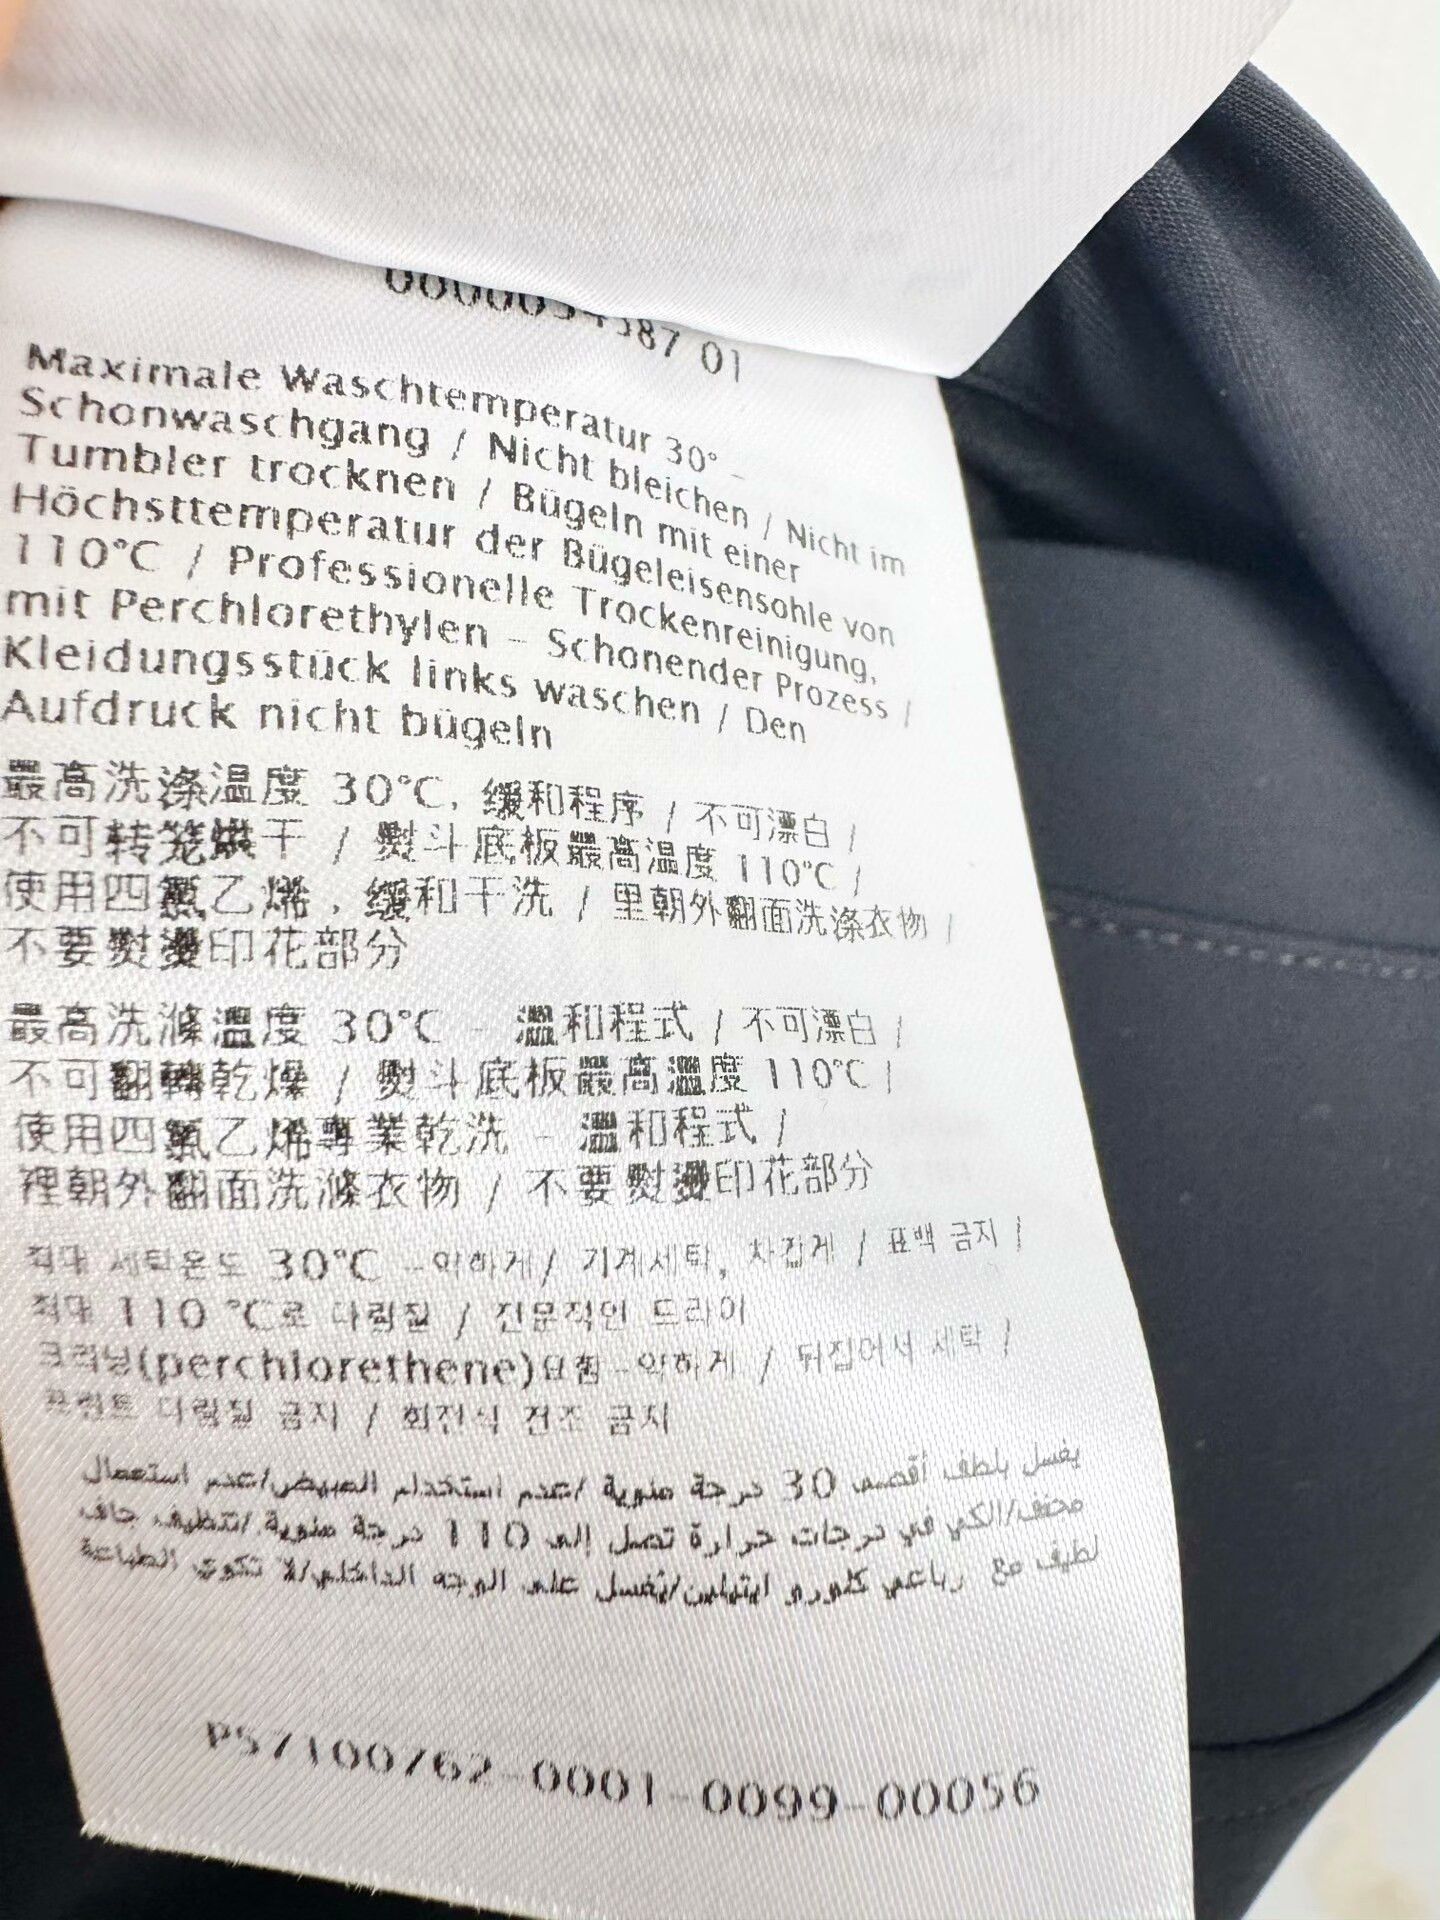 87 01
Maximale Waschtemperatur 30° –
Schonwaschgang / Nicht bleichen / Nicht im
Tumbler trocknen / Bügeln mit einer
Höchsttemperatur der Bügeleisensohle von
110°C / Professionelle Trockenreinigung,
mit Perchlorethylen – Schonender Prozess /
Kleidungsstück links waschen / Den
Aufdruck nicht bügeln
最高洗涤温度 30°C, 缓和程序 / 不可漂白 /
不可转笼烘干 / 熨斗底板最高温度 110°C /
使用四氯乙烯，缓和干洗 / 里朝外翻面洗涤衣物 /
不要熨烫印花部分
最高洗滌溫度 30°C - 溫和程式 / 不可漂白 /
不可翻轉乾燥 / 熨斗底板最高溫度 110°C /
使用四氯乙烯專業乾洗 - 溫和程式 /
裡朝外翻面洗滌衣物 / 不要熨燙印花部分
최대 세탁온도 30°C -약하게/ 기계세탁, 차갑게 / 표백 금지 /
최대 110 °C로 다림질 / 전문적인 드라이
크리닝(perchlorethene)요함-약하게 / 뒤집어서 세탁 /
프린트 다림질 금지 / 회전식 건조 금지
يغسل بلطف أقصى 30 درجة مئوية /عدم استخدام المبيض/عدم استعمال
مجفف/الكي في درجات حرارة تصل إلى 110 درجة مئوية /تنظيف جاف
لطيف مع رباعي كلورو ايثيلين/يغسل على الوجه الداخلي/لا تكوي الطباعة
P57100762-0001-0099-00056